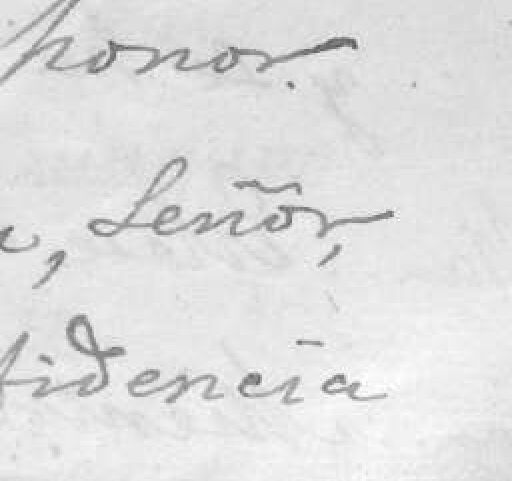 honor.
, Señor,
fidencia